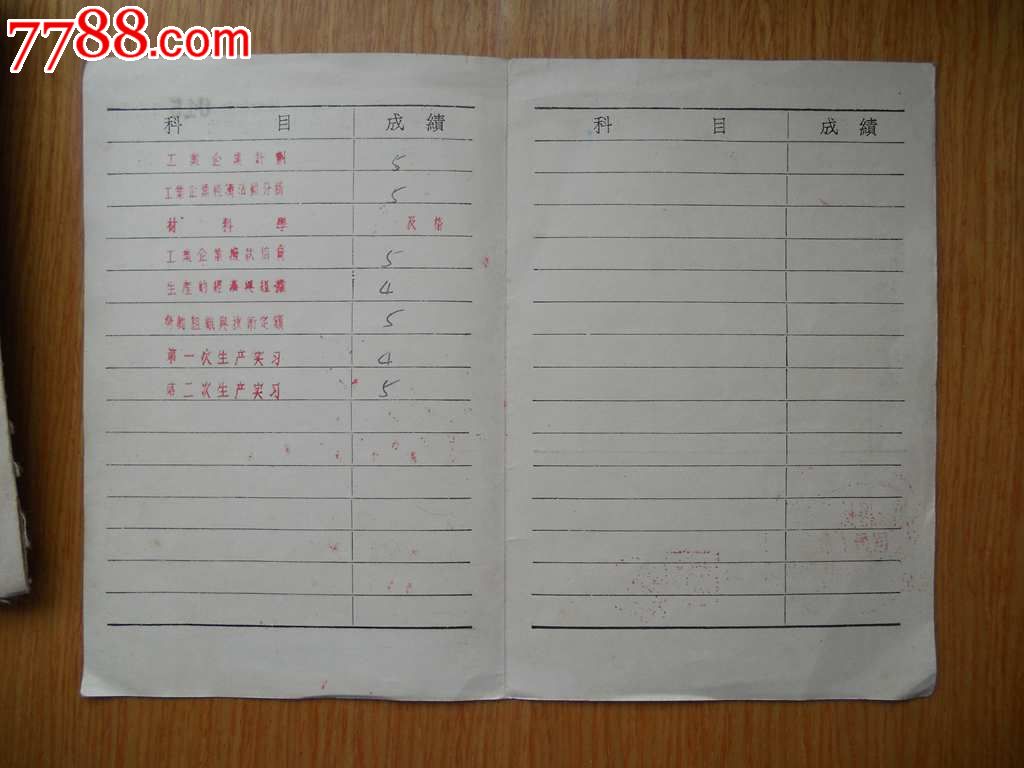 7788.com
科 目 成 績
工業企業計劃 5
工業企業經濟活動分析 5
材料學 及格
工業企業 5
生産的經濟與組織 4
組織與技術定額 5
第一次生产实习 4
第二次生产实习 5
科 目 成 績